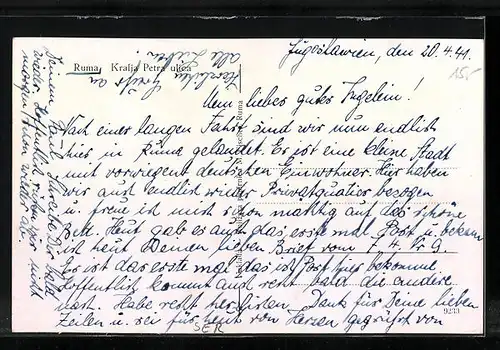 Ruma, Kralja Petra ulica
Jugoslawien, den 20.4.41.
15.-
Mein liebes gutes Ingelein!
Nach einer langen Fahrt sind wir nun endlich
hier in Ruma gelandet. Es ist eine kleine Stadt
mit vorwiegent deutschen Einwohner. Hier haben
wir auch endlich wieder Privatquatier bezogen
u. freue ich mich schon mächtig auf das schöne
Bett. Heut gab es auch das erste mal Post u. bekam
ich heut Deinen lieben Brief vom 7.4. Nr 9
Es ist das erste mal das ich Post hier bekomme
hoffentlich kommt auch recht bald die andere
nach. Habe recht herzlichen Dank für Deine lieben
Zeilen u. sei für heut von Herzen gegrüßt von
Deinem Paul. Schreibe Dir bald
wieder. Hoffentlich rücken wir nicht
morgen schon wieder ab.
Herzliche Grüße an
alle Lieben!
9233
SER